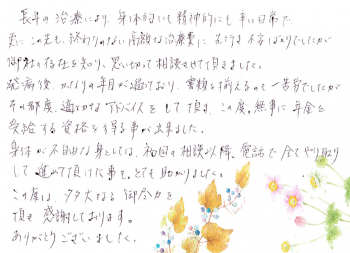 長年の治療により、身体的にも精神的にも辛い日常で、
更にこの先も、終わりのない高額な治療費に 先行き不安ばかりでしたが
御社の存在を知り、思い切って相談させて頂きました。
発病後、かなりの年月が過ぎており、書類を揃えるのも一苦労でしたが
その都度、適切なアドバイスをして頂き、この度、無事に年金を
受給する資格を得る事が出来ました。
身体が不自由な身としては、初回の相談以降、電話で全てやり取り
して進めて頂けた事も、とても助かりました。
この度は、多大なる御尽力を
頂き感謝しております。
ありがとうございました。